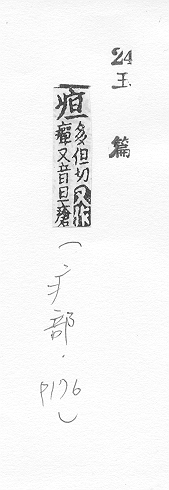 24玉篇
疸
多但切又作
癉又音旦瘡
(疒部.P176)